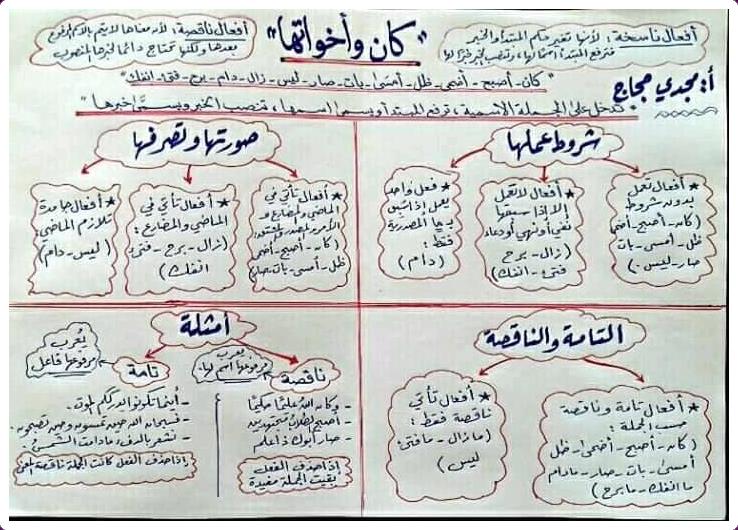 "كان وأخواتها"
أفعال ناسخة: لأنها تغير حكم المبتدأ والخبر
فترفع المبتدأ اسمًا لها، وتنصب الخبر خبرًا لها
أفعال ناقصة: لأن معناها لا يتم بالاسم المرفوع
بعدها ولكنها تحتاج دائمًا لخبرها المنصوب
أ: مجدي حجاج
"كان - أصبح - أضحى - ظل - أمسى - بات - صار - ليس - زال - دام - برح - فتئ - انفك"
تدخل على الجملة الاسمية، ترفع المبتدأ ويسمى اسمها، وتنصب الخبر ويسمى خبرها"
شروط عملها
* أفعال تعمل
بدون شروط
(كان - أصبح - أضحى
ظل - أمسى - بات
صار - ليس.)
* أفعال لا تعمل
إلا إذا سبقها
نفي أو نهي أو دعاء
(زال - برح
فتئ - انفك)
* فعل واحد
يعمل إذا سُبق
بـ(ما) المصدرية
فقط:
(دام)
صورتها وتصرفها
* أفعال تأتي في
الماضي والمضارع و
الأمر
(كان - أصبح - أضحى
ظل - أمسى - بات - صار)
* أفعال تأتي في
الماضي والمضارع:
(زال - برح - فتئ
انفك)
* أفعال جامدة
تلازم الماضي
(ليس - دام)
التامة والناقصة
* أفعال تامة وناقصة
حسب الجملة:
(كان - أصبح - أضحى - ظل
أمسى - بات - صار - مادام
ما انفك - ما برح)
* أفعال تأتي
ناقصة فقط:
(مازال - مافتئ
ليس)
أمثلة
ناقصة
يعرب
مرفوعها اسم لها.
- وكان الله عليمًا حكيمًا
- أصبح الطلاب مجتهدين
- صار أبوك ذا علم
إذا حذف الفعل
بقيت الجملة مفيدة
تامة
يُعرب
مرفوعها فاعل
- أينما تكونوا يدرككم الموت.
- فسبحان الله حين تمسون وحين تصبحون.
- نشعر بالدفء مادامت الشمسُ
إذا حذف الفعل كانت الجملة ناقصة المعنى